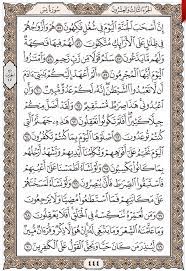 الجزء الثالث والعشرون سورة يس
إِنَّ أَصْحَٰبَ ٱلْجَنَّةِ ٱلْيَوْمَ فِى شُغُلٍ فَٰكِهُونَ ٥٥ هُمْ وَأَزْوَٰجُهُمْ
فِى ظِلَٰلٍ عَلَى ٱلْأَرَآئِكِ مُتَّكِـُٔونَ ٥٦ لَهُمْ فِيهَا فَٰكِهَةٌ
وَلَهُم مَّا يَدَّعُونَ ٥٧ سَلَٰمٌ قَوْلًا مِّن رَّبٍّ رَّحِيمٍ ٥٨ وَٱمْتَٰزُوا۟
ٱلْيَوْمَ أَيُّهَا ٱلْمُجْرِمُونَ ٥٩ أَلَمْ أَعْهَدْ إِلَيْكُمْ يَٰبَنِىٓ ءَادَمَ
أَن لَّا تَعْبُدُوا۟ ٱلشَّيْطَٰنَ إِنَّهُۥ لَكُمْ عَدُوٌّ مُّبِينٌ ٦٠ وَأَنِ
ٱعْبُدُونِى هَٰذَا صِرَٰطٌ مُّسْتَقِيمٌ ٦١ وَلَقَدْ أَضَلَّ مِنكُمْ
جِبِلًّا كَثِيرًا أَفَلَمْ تَكُونُوا۟ تَعْقِلُونَ ٦٢ هَٰذِهِۦ جَهَنَّمُ ٱلَّتِى
كُنتُمْ تُوعَدُونَ ٦٣ ٱصْلَوْهَا ٱلْيَوْمَ بِمَا كُنتُمْ تَكْفُرُونَ
٦٤ ٱلْيَوْمَ نَخْتِمُ عَلَىٰٓ أَفْوَٰهِهِمْ وَتُكَلِّمُنَآ أَيْدِيهِمْ
وَتَشْهَدُ أَرْجُلُهُم بِمَا كَانُوا۟ يَكْسِبُونَ ٦٥ وَلَوْ نَشَآءُ لَطَمَسْنَا
عَلَىٰٓ أَعْيُنِهِمْ فَٱسْتَبَقُوا۟ ٱلصِّرَٰطَ فَأَنَّىٰ يُبْصِرُونَ ٦٦ وَلَوْ نَشَآءُ
لَمَسَخْنَٰهُمْ عَلَىٰ مَكَانَتِهِمْ فَمَا ٱسْتَطَٰعُوا۟ مُضِيًّا وَلَا يَرْجِعُونَ
٦٧ وَمَن نُّعَمِّرْهُ نُنَكِّسْهُ فِى ٱلْخَلْقِ أَفَلَا يَعْقِلُونَ ٦٨ وَمَا عَلَّمْنَٰهُ
ٱلشِّعْرَ وَمَا يَنۢبَغِى لَهُۥٓ إِنْ هُوَ إِلَّا ذِكْرٌ وَقُرْءَانٌ مُّبِينٌ ٦٩
لِّيُنذِرَ مَن كَانَ حَيًّا وَيَحِقَّ ٱلْقَوْلُ عَلَى ٱلْكَٰفِرِينَ ٧٠
٤٤٤